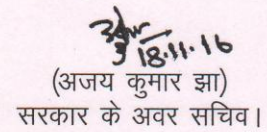 18.11.16
(अजय कुमार झा)
सरकार के अवर सचिव।